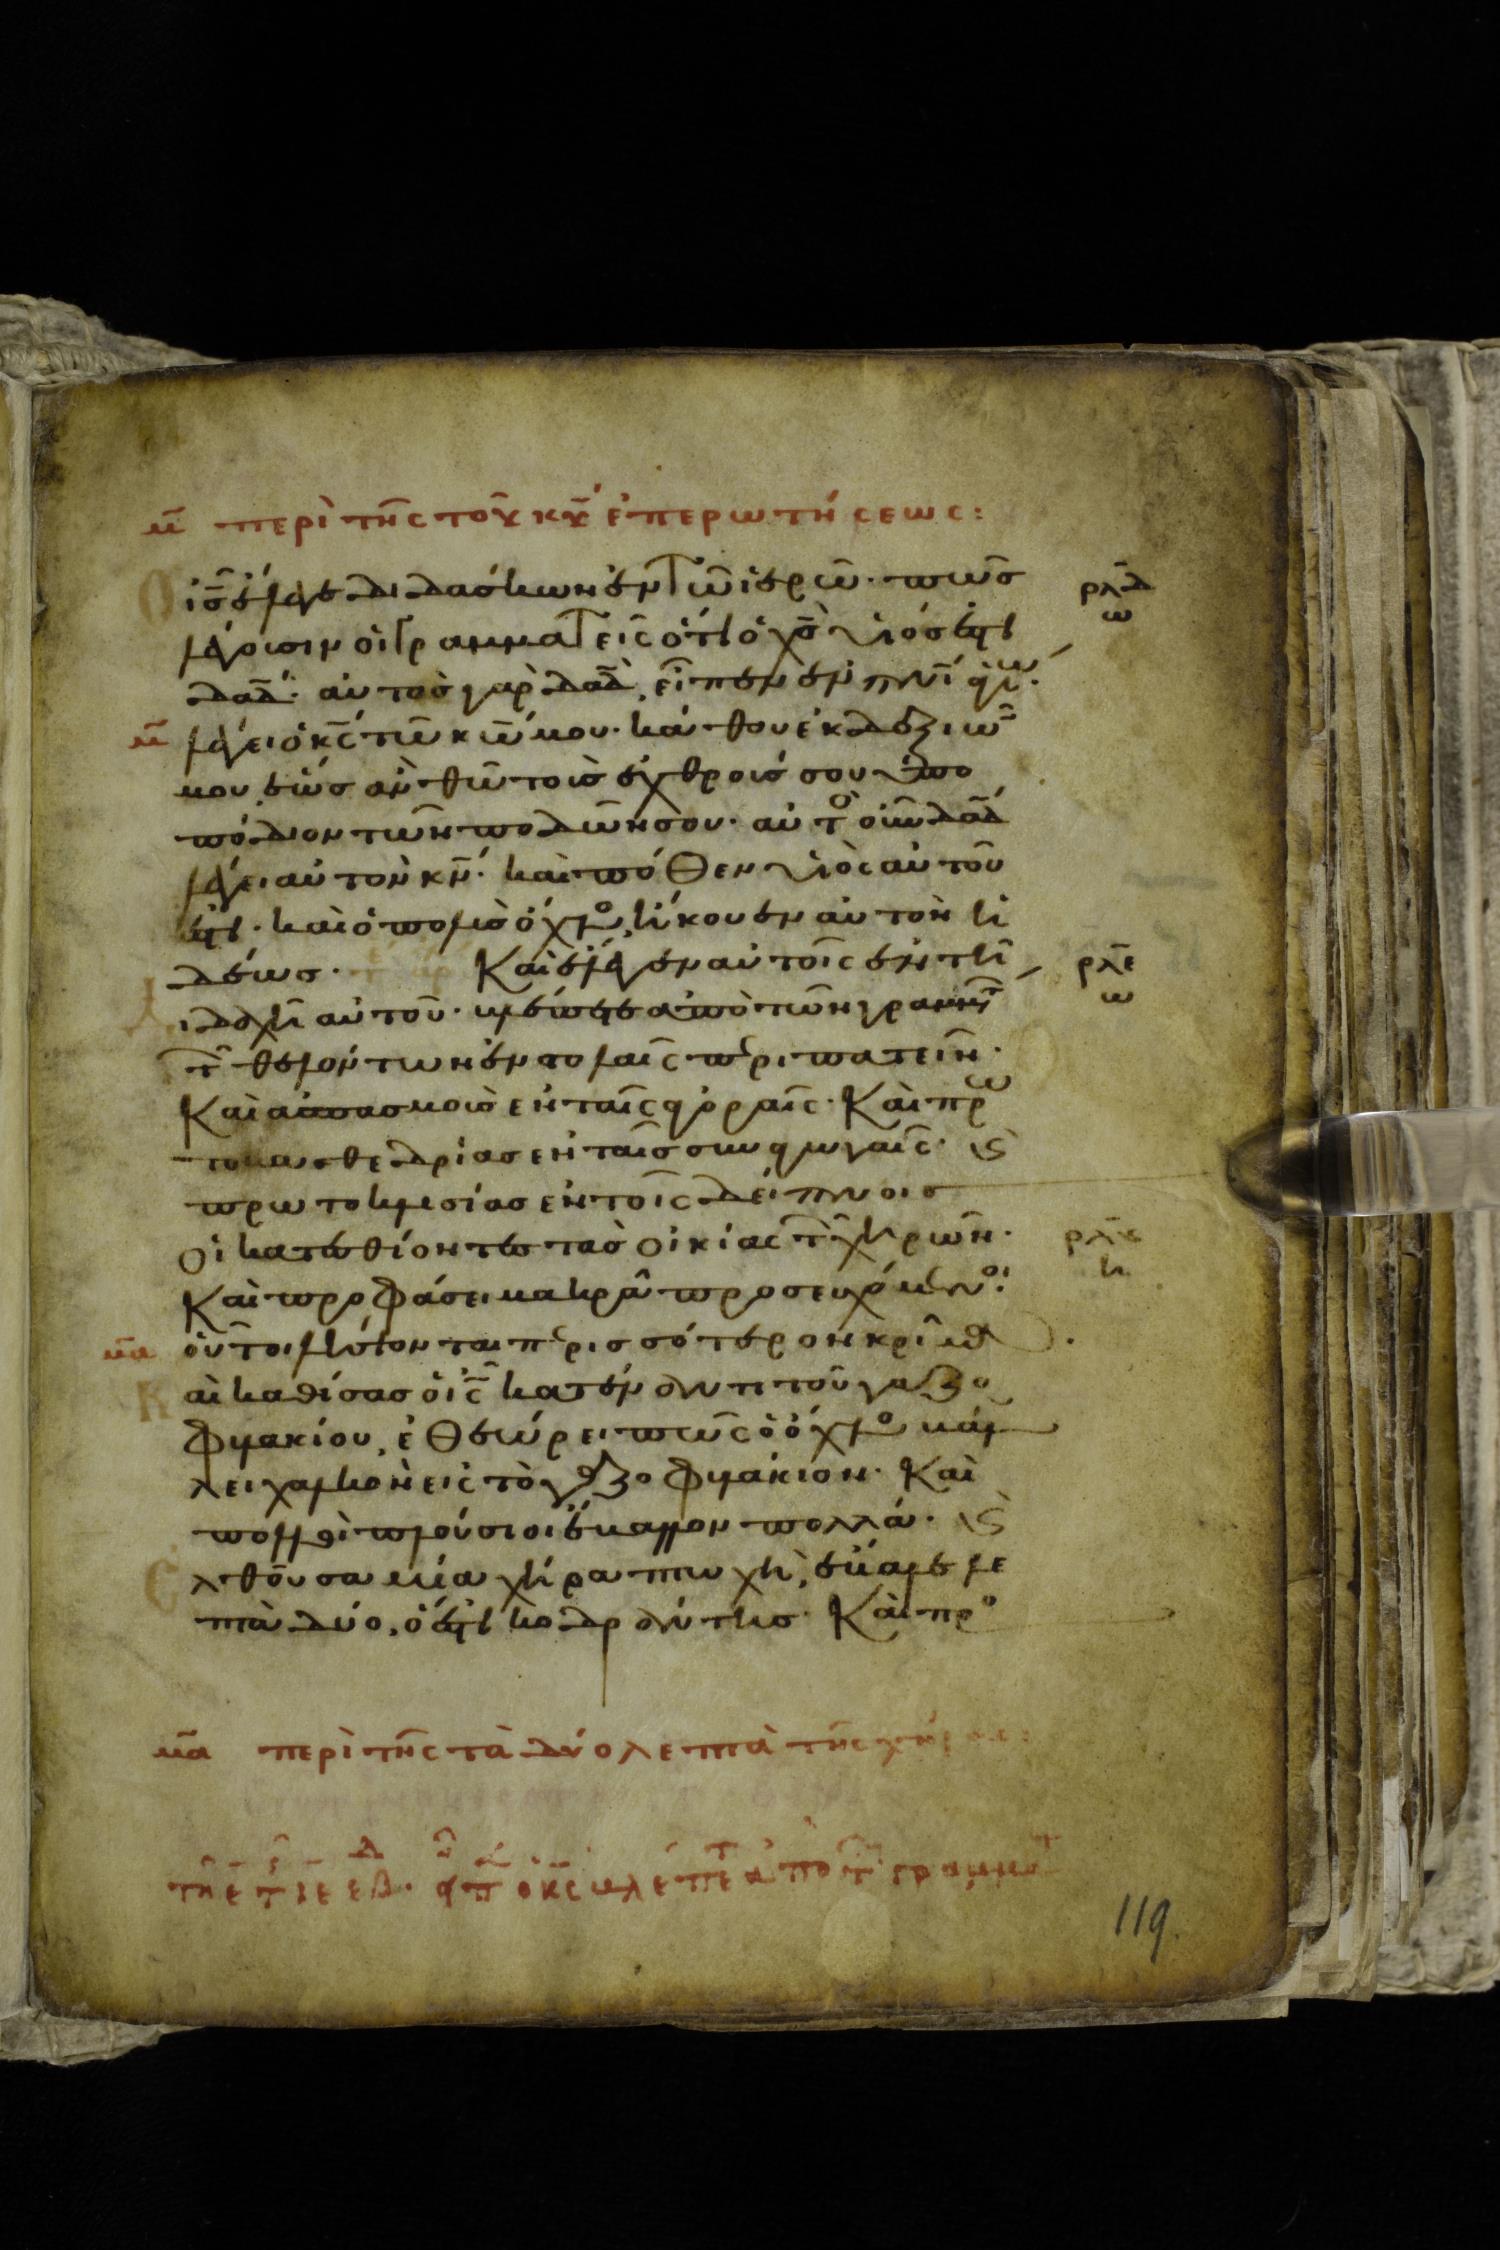 μ̄ περὶ τῆς τοῦ κ̄ῡ ἐπερωτήσεως:
Ο ῑς̄ ἔλεγε διδάσκων ἐν τῶ ἱερῶ. πῶς
λέγουσιν οἱ γραμματεῖς ὅτι ὁ χ̄ς̄ υἱός ἐστι
δᾱδ̄. αὐτὸς γὰρ δᾱδ̄, εἶπεν ἐν π̄ν̄ῑ ἁγίω.
μ̄ λέγει ὁ κ̄ς̄ τῶ κ̄ω̄ μου. κάθου ἐκ δεξιῶν
μου, ἕως ἂν θῶ τοὺς ἐχθρούς σου ὑπο
πόδιον τῶν ποδῶν σου. αὐτὸς οὖν δᾱδ̄
λέγει αὐτὸν κ̄ν̄. καὶ πόθεν υἱὸς αὐτοῦ
ἐστι. καὶ ὁ πολὺς ὄχλος, ἤκουεν αὐτοῦ ἡ
δέως. Καὶ ἔλεγεν αὐτοῖς ἐν τῆ
διδαχῆ αὐτοῦ. βλέπετε ἀπὸ τῶν γραμμτ
τῶν θελόντων ἐν στολαῖς περιπατεῖν.
Καὶ ἀσπασμοὺς ἐν ταῖς ἀγοραῖς. Καὶ πρω
τοκαθεδρίας ἐν ταῖς συναγωγαῖς. κ̀
πρωτοκλισίας ἐν τοῖς δείπνοις
Οἱ κατεσθίοντες τὰς οἰκίας τῶν χηρῶν.
Καὶ προφάσει μακρὰ προσευχόμενοι
μ̄ᾱ οὗτοι λήψονται περισσότερον κρίμα.
Καὶ καθίσας ὁ ῑς̄ κατέναντι τοῦ γαζο
φυλακίου, ἐθεώρει πῶς ὁ ὄχλος βάλ
λει χαλκὸν εἰς τὸ γαζοφυλάκιον. Καὶ
πολλοὶ πλούσιοι ἔβαλλον πολλά. κ̀
Ἐλθοῦσα μία χήρα πτωχὴ, ἔβαλε λε
πτὰ δύο, ὅ ἐστι κοδράντης. Καὶ προ
ρ̄λ̄δ̄
ω
ρ̄λ̄ε̄
ω
ρ̄λ̄ς̄
η
μ̄ᾱ περὶ τῆς τὰ δύο λεπτὰ τῆς χήρας:
119